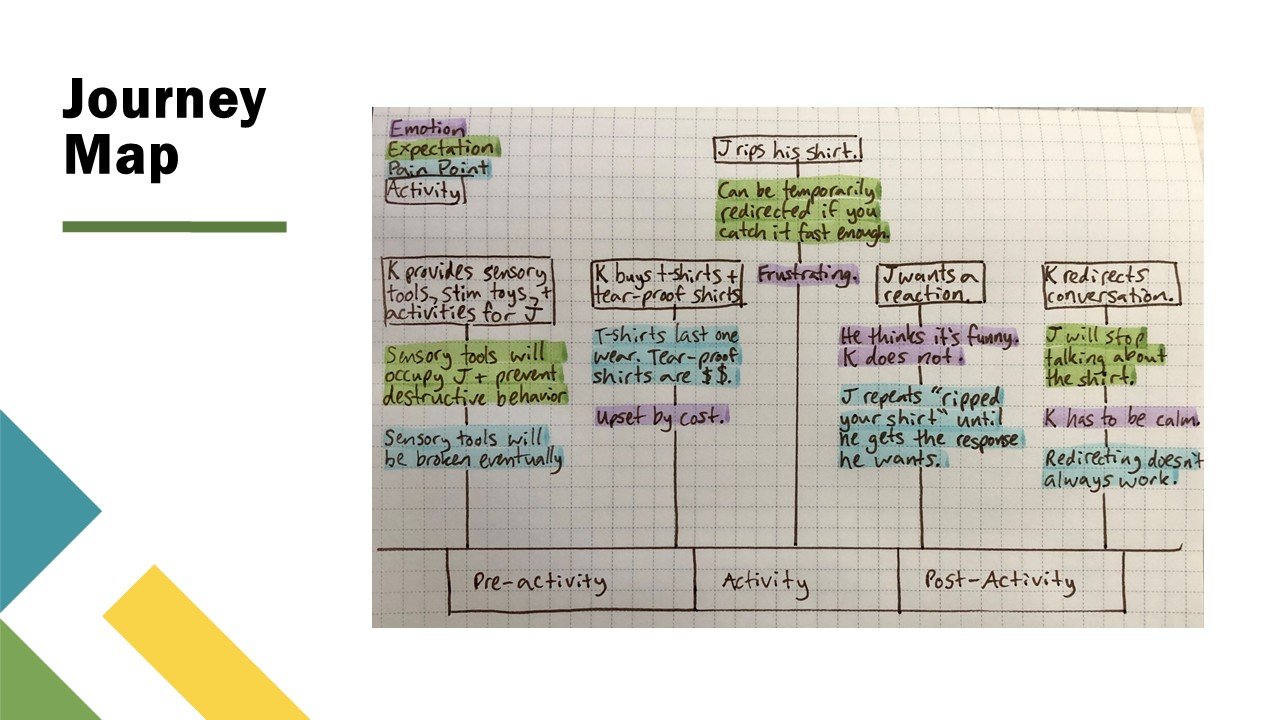 Journey
Map
Emotion
Expectation
Pain Point
Activity
J rips his shirt.
Can be temporarily
redirected if you
catch it fast enough.
Frustrating.
K provides sensory
tools, stim toys, +
activities for J
Sensory tools will
occupy J + prevent
destructive behavior
Sensory tools will
be broken eventually
K buys t-shirts +
tear-proof shirts
T-shirts last one
wear. Tear-proof
shirts are $$.
Upset by cost.
J wants a
reaction.
He thinks it's funny.
K does not.
J repeats "ripped
your shirt" until
he gets the response
he wants.
K redirects
conversation.
J will stop
talking about
the shirt.
K has to be calm.
Redirecting doesn't
always work.
Pre-activity
Activity
Post-Activity